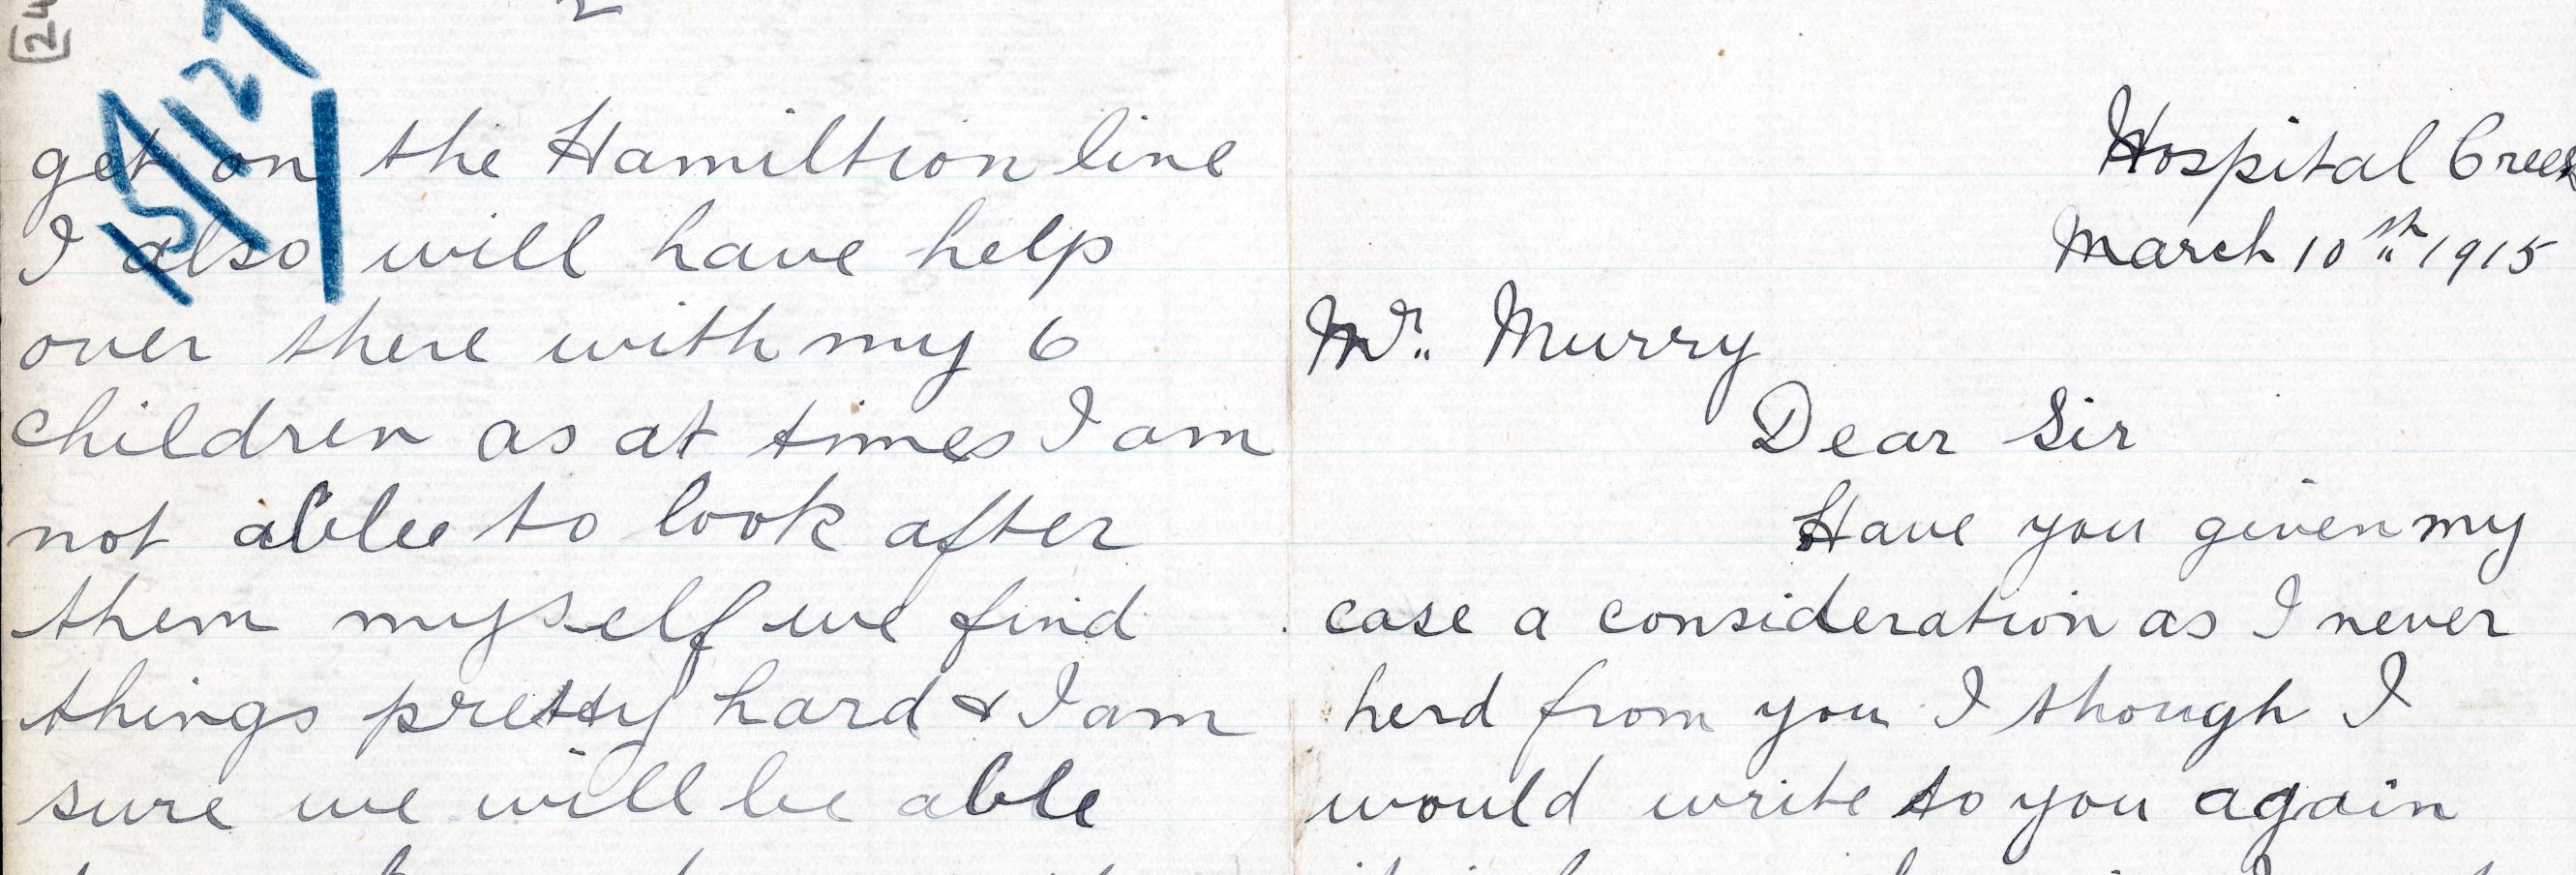 Hospital Creek
March 10th 1915
Mr. Murry
Dear Sir
Have you given my
case a consideration as I never
herd from you I though I
would write to you again
2
get on the Hamiltion line
I also will have help
over there with my 6
children as at times I am
not able to look after
them myself we find
things pretty hard & I am
sure we will be able